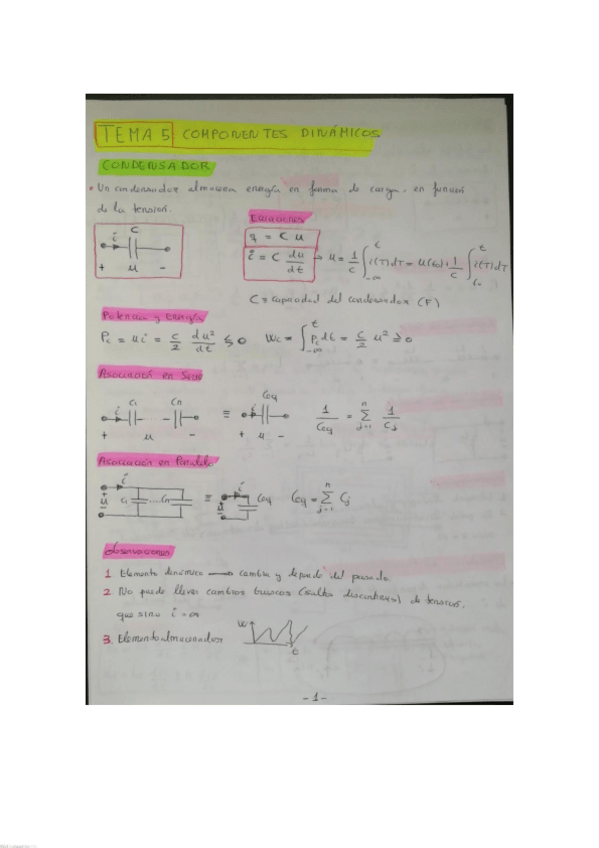 TEMA 5 COMPONENTES DINÁMICOS
CONDENSADOR
• Un condensador almacena energía en forma de carga, en función
de la tensión.
C
i
+ u -
Ecuaciones
q = C u
i = C du/dt → u = 1/C ∫_{-∞}^{t} i(T) dT = u(t₀) + 1/C ∫_{t₀}^{t} i(T) dT
C ≡ capacidad del condensador (F)
Potencia y energía
Pc = u i = C/2 du²/dt ≶ 0 Wc = ∫_{-∞}^{t} Pc dt = C/2 u² ≥ 0
Asociación en Serie
C1 Cn ≡ Ceq 1/Ceq = Σ_{j=1}^{n} 1/Cj
i i
+ u - + u -
Asociación en Paralelo
i i
+ u - C1 .... Cn ≡ u Ceq Ceq = Σ_{j=1}^{n} Cj
Observaciones
1 Elemento dinámico → cambia y depende del pasado.
2 No puede llevar cambios bruscos (salto discontinuo) de tensión,
que sino i = ∞
3. Elemento almacenador W t
- 1 -